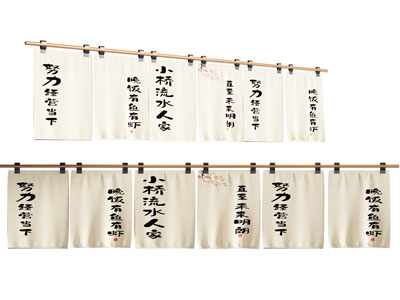 努力经营当下
晚饭有鱼有虾
小桥流水人家
直至未来明朗
努力经营当下
晚饭有鱼有虾
努力经营当下
晚饭有鱼有虾
小桥流水人家
直至未来明朗
努力经营当下
晚饭有鱼有虾